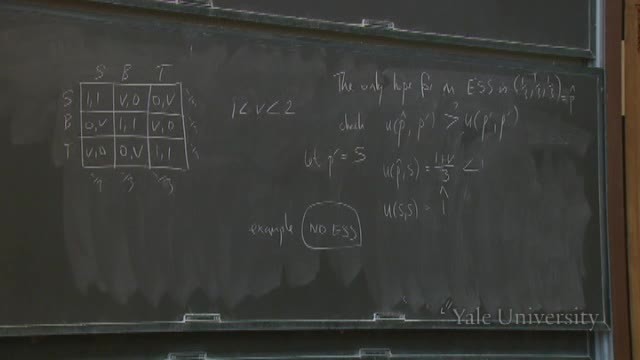 S B T
S 1,1 v,0 0,v 1/3
B 0,v 1,1 v,0 1/3
T v,0 0,v 1,1 1/3
1/3 1/3 1/3
1<v<2
The only hope for an ESS is (1/3, 1/3, 1/3) = p̂
check u(p̂, p') >? u(p', p')
let p' = S
u(p̂,S) = 1+v/3 < 1
u(S,S) = 1
example NO ESS
Yale University